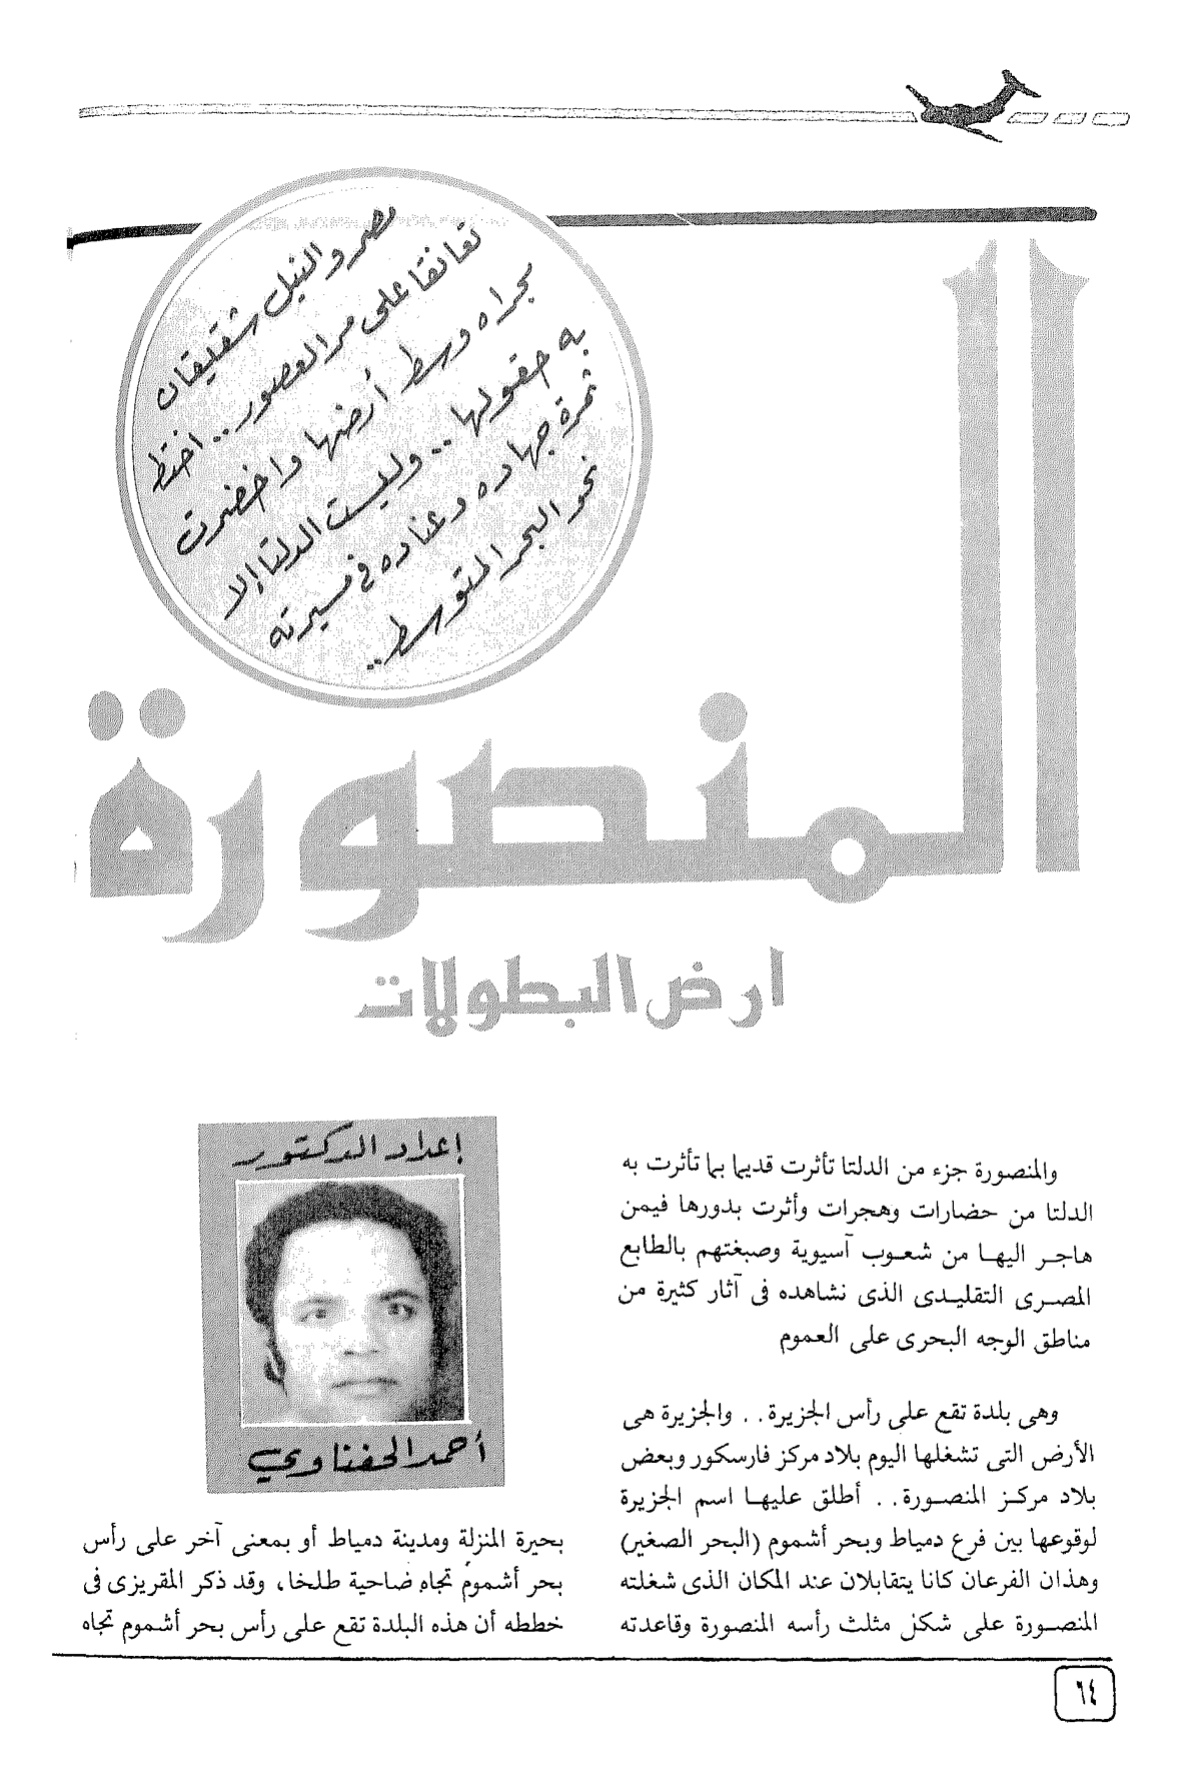 مصر والنيل شقيقان
تعانقا على مر العصور .. اختط
مجراه وسط أرضها واخضرت
به حقولها .. وليست الدلتا إلا
ثمرة جهاده وعناده في مسيرته
نحو البحر المتوسط ..
المنصورة
ارض البطولات
والمنصورة جزء من الدلتا تأثرت قديما بما تأثرت به
الدلتا من حضارات وهجرات وأثرت بدورها فيمن
هاجر اليها من شعوب آسيوية وصبغتهم بالطابع
المصرى التقليدى الذى نشاهده فى آثار كثيرة من
مناطق الوجه البحرى على العموم
وهى بلدة تقع على رأس الجزيرة . . والجزيرة هى
الأرض التى تشغلها اليوم بلاد مركز فارسكور وبعض
بلاد مركز المنصورة . . أطلق عليها اسم الجزيرة
لوقوعها بين فرع دمياط وبحر أشموم (البحر الصغير)
وهذان الفرعان كانا يتقابلان عند المكان الذى شغلته
المنصورة على شكل مثلث رأسه المنصورة وقاعدته
إعداد الدكتور
أحمد الحفناوي
بحيرة المنزلة ومدينة دمياط أو بمعنى آخر على رأس
بحر أشموم تجاه ضاحية طلخا، وقد ذكر المقريزى فى
خططه أن هذه البلدة تقع على رأس بحر أشموم تجاه
٦٤